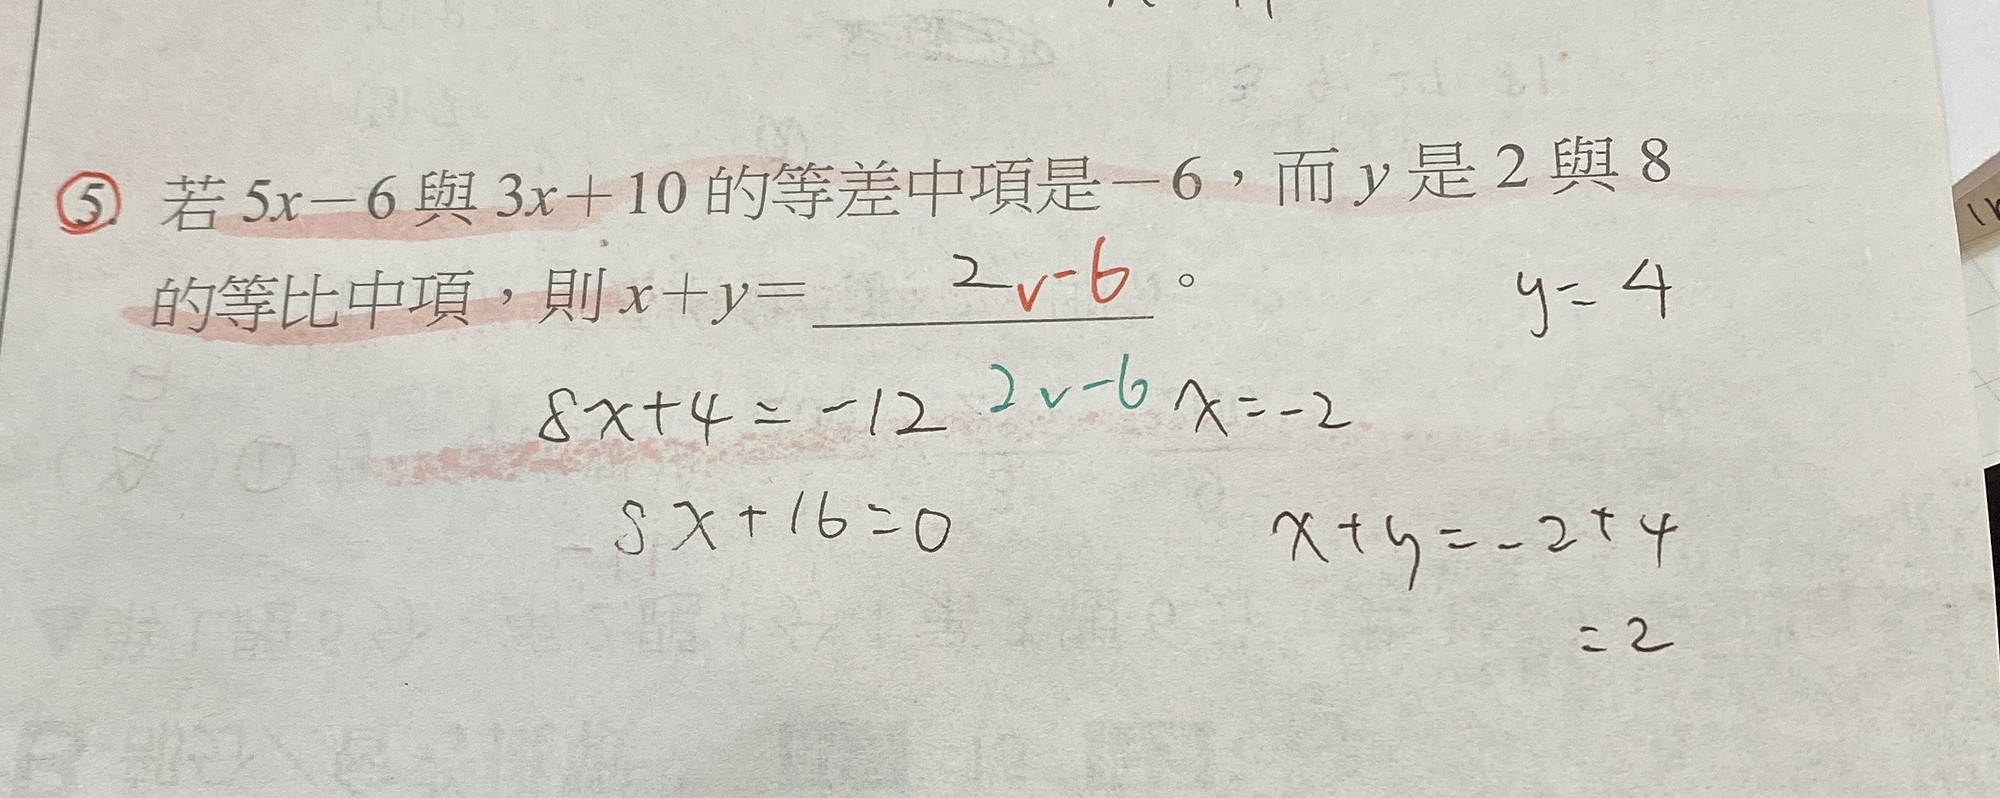 5. 若 5x－6 與 3x＋10 的等差中項是－6，而 y 是 2 與 8
的等比中項，則 x＋y＝ 2 v -6 。
y = 4
8x+4 = -12 2 v -6 x = -2
8x+16=0
x+y = -2+4
= 2